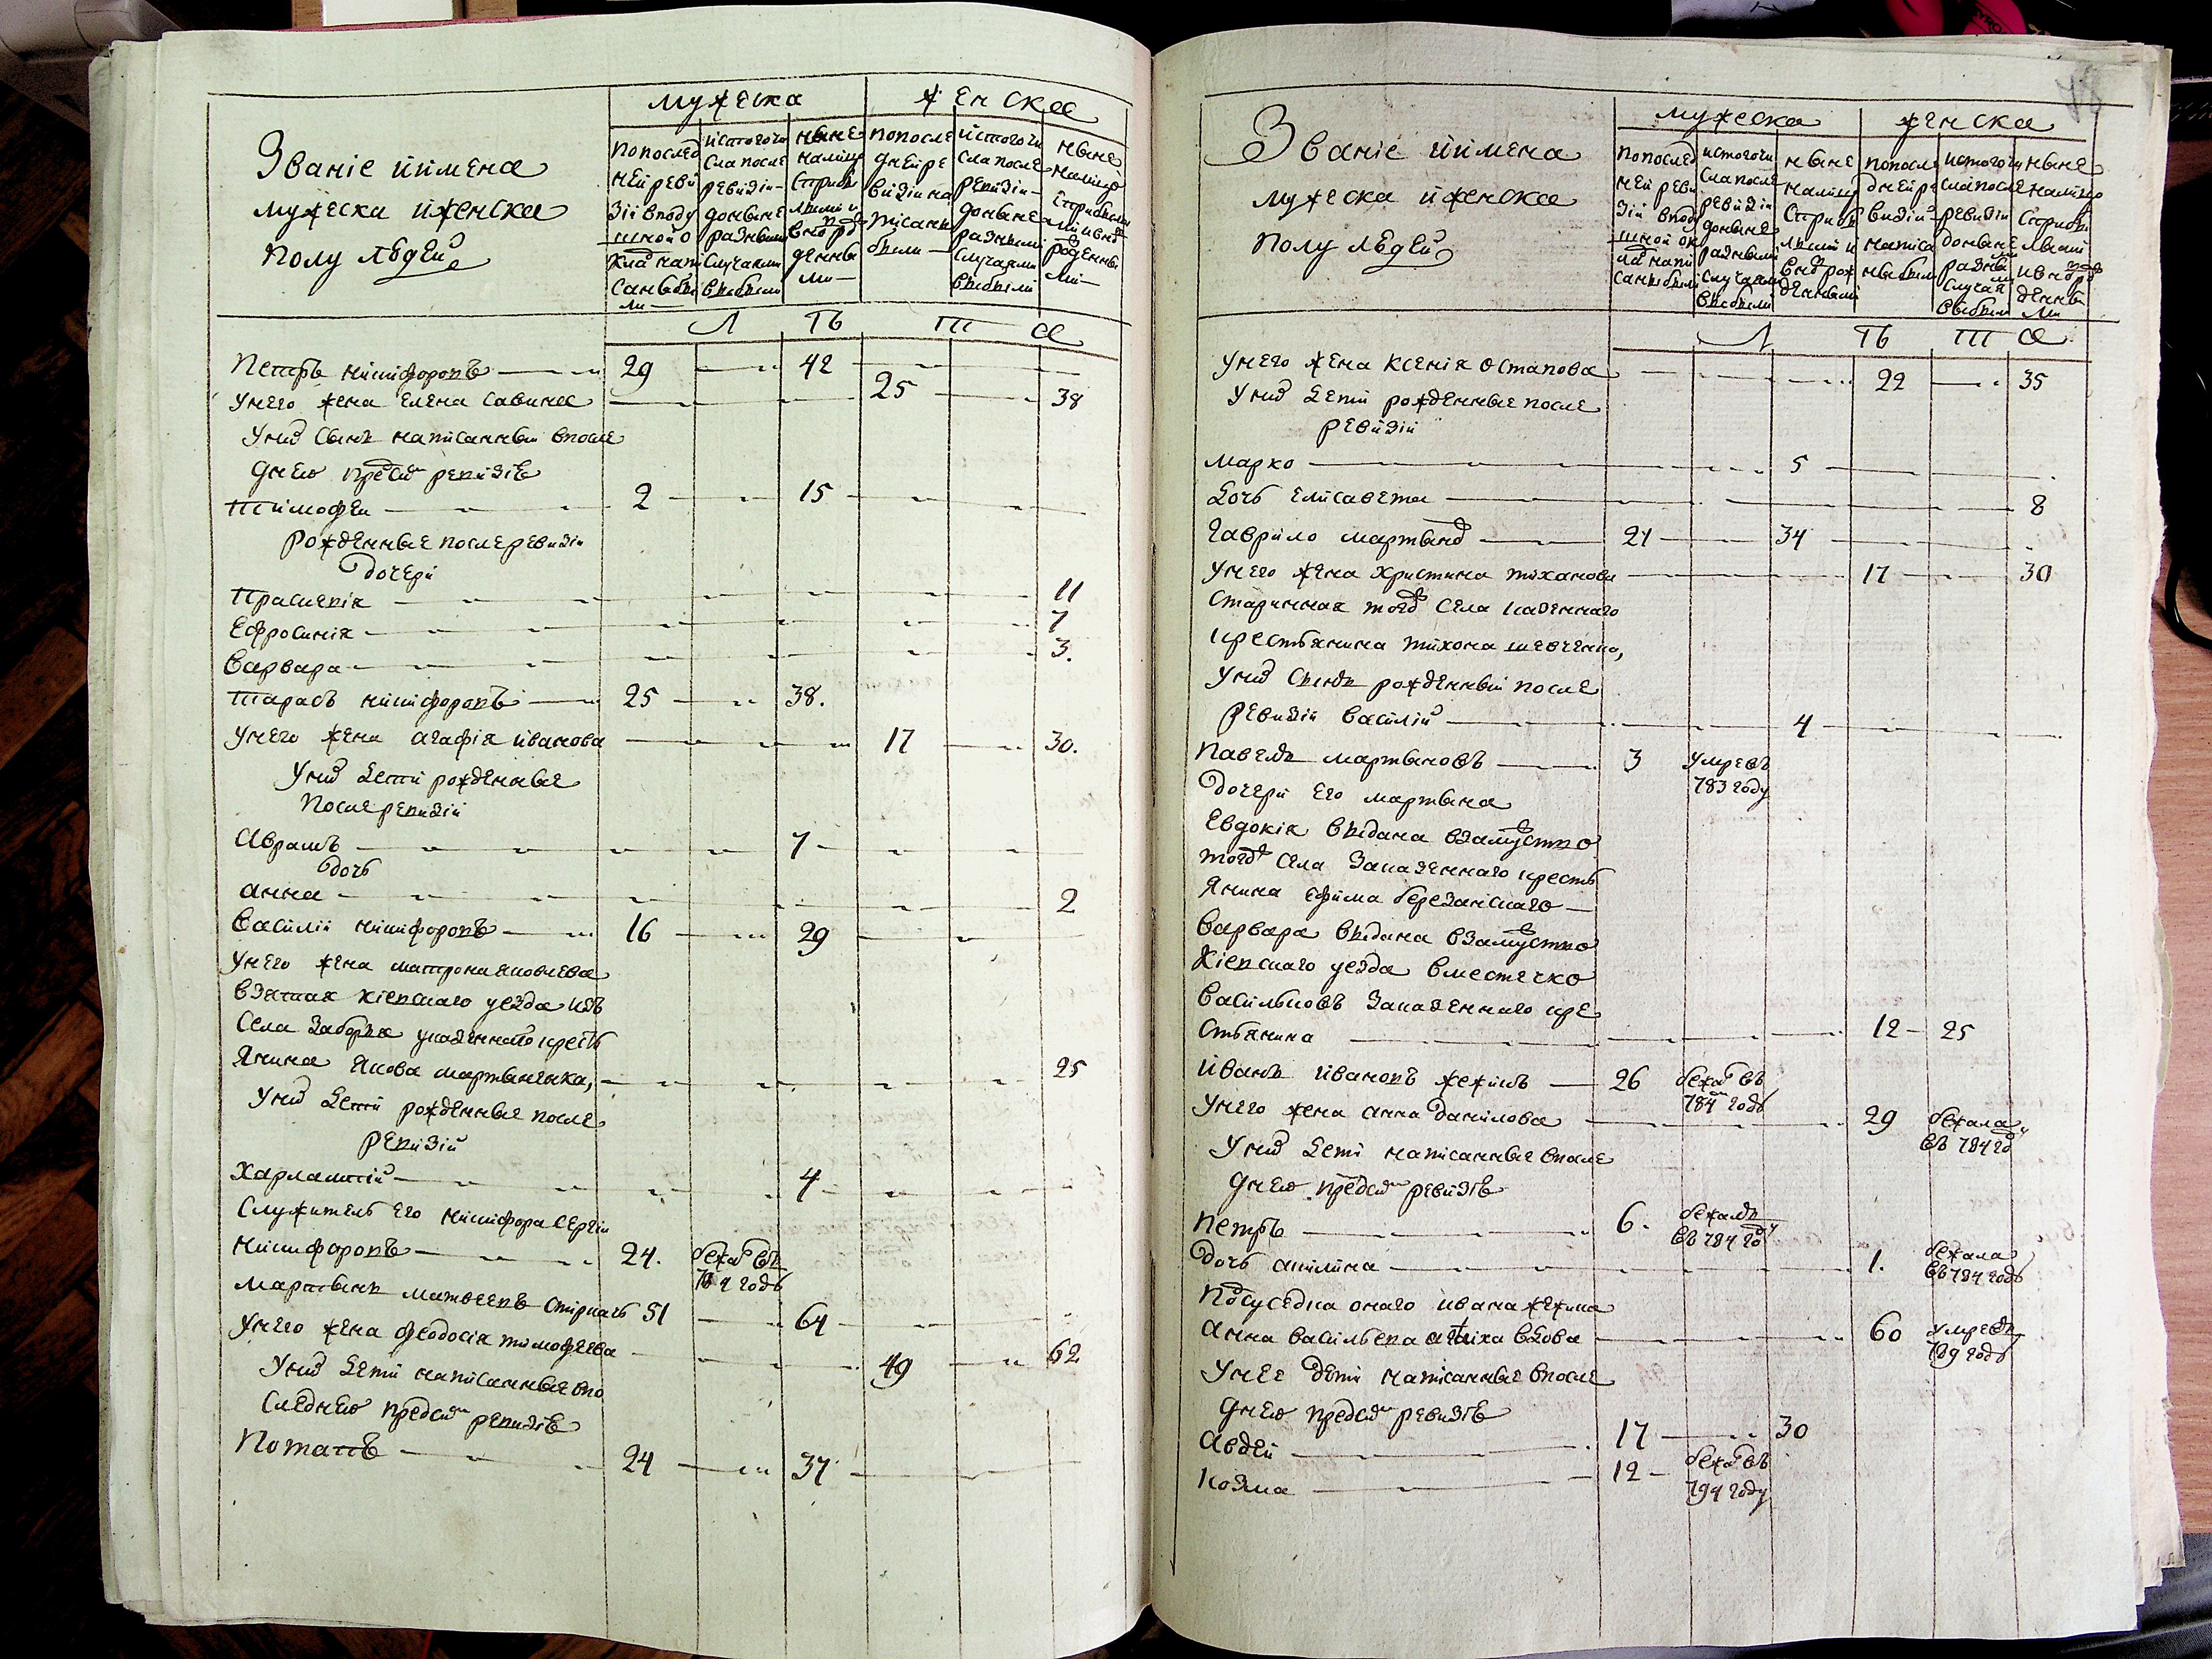 Званіе иимена
мужеска иженска
полу людей
мужеска
женска
попослед
ней реви
зіи вподу
шной о
кладъ напи
саны бы
ли
истогочи
сла после
ревизіи
доныне
разными
случаями
выбыли
ныне
налицо
лыми и
вновь
денны
ми
попосле
дней ре
визіи на
писаны
были
истогочи
сла после
ревизіи
доныне
разными
случаями
выбыли
ныне
налицо
рожденны
ми
Л ѣ т а
Петръ никифоровъ 29 42
Унего жена елена савина 25 38
Уних сынъ написанный впосле
днею пред сим ревизіею
тимофеи 2 15
рожденные послеревизіи
дочери
Прасковія 11
Ефросинія 7
Варвара 3.
тарасъ никифоровъ 25 38.
Унего жена агафія иванова 17 30.
Уних дети рожденные
после ревизіи
Аврамъ 7
дочь
анна 2
Василіи никифоровъ 16 29
Унего жена матрона яковлева
взятая кіевского уезда изъ
села заборья указенного кресть
янина якова мартыненка, 25
Уних дети рожденные после
ревизіи
Харлампій 4
Служитель его никифора сергіи
никифоровъ 24. бежал въ
784 годъ
Мартынъ матвеевъ 51 64
Унего жена феодосія тимофеева 49 62
Уних дети написанные впо
следнею пред сим ревизіею
Потапъ 24 37
Званіе иимена
мужеска иженска
полу людей
мужеска
женска
попослед
ней реви
зіи вподу
шной ок
лад напи
саны были
истогочи
сла после
ревизіи
доныне
разными
случаями
выбыли
ныне
налицо
лыми и
вновь рож
денными
попосле
дней ре
визіи
написа
ны были
истогочи
сла после
ревизіи
доныне
разны
ми
случая
ми
выбыли
ныне
налицо
лыми
и вновь
денны
ми
Л ѣ т а
Унего жена ксенія остапова 22 35
Уних дети рожденные после
ревизіи
Марко 5
дочь елисавета 8
Гаврило мартынов 21 34
Унего жена христина тиханова 17 30
старинная тогож села казенного
крестьянина тихона шевченка,
Уних сынъ рожденный после
ревизіи василій 4
Павелъ мартыновъ 3 Умре въ
783 году
дочери его мартына
Евдокія выдана взамужство
тогож села заказенного кресть
янина ефима березанского
Варвара выдана взамужство
Кіевского уезда вместечко
васильковъ заказенного кре
стьянина 12 25
Иванъ ивановъ жежель 26 бежал въ
784 годъ
Унего жена анна данилова 29 бежала
въ 784 год
Уних дети написанные впосле
днею пред сим ревизіею
Петръ 6. бежалъ
въ 784 году
дочь акилина 1. бежала
въ 784 годъ
Подсуседка оного ивана жежеля
анна васильева вдова 60 умре въ
789 годъ
Унее дети написанные впосле
днею пред сим ревизіею
Авдеи 17 30
Козма 12 бежал въ
794 году